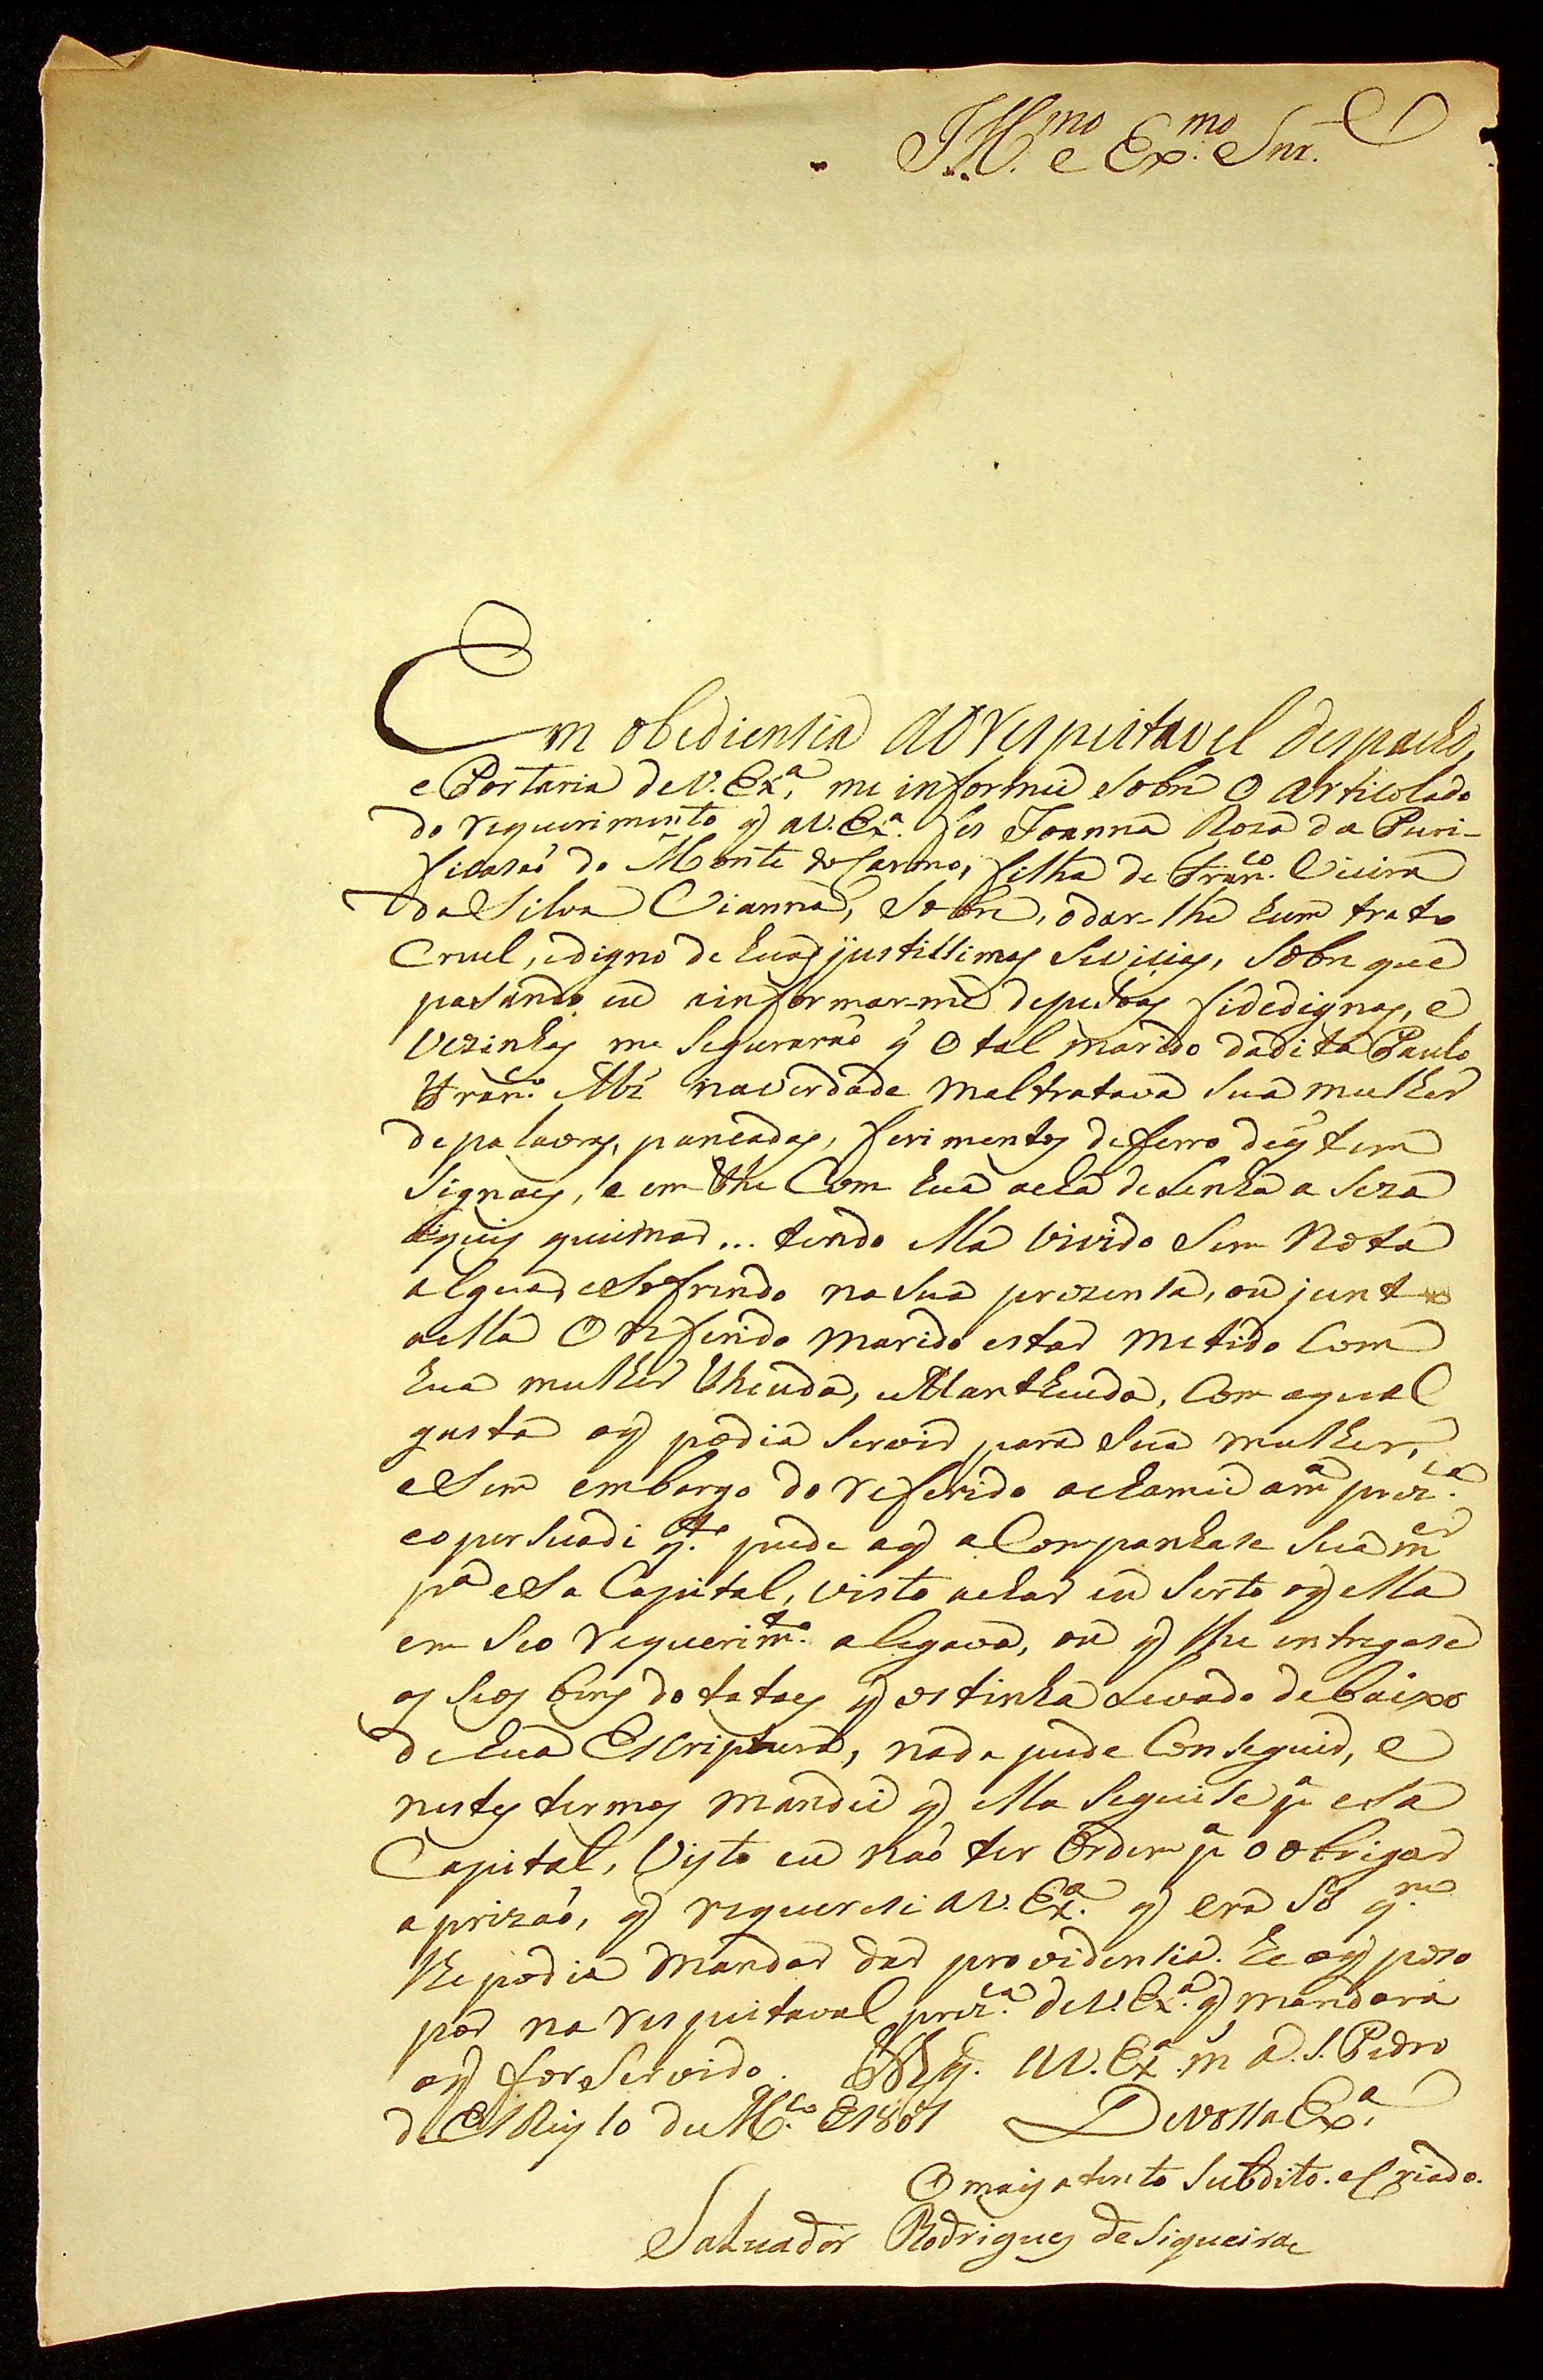 Ill.mo e Ex.mo Snr.
Em obediensia ao respeitavel despacho,
e Portaria de V. Ex.a me informei sobre o articolado
do requerimento q̃ a V. Ex.a fes Joanna Roza da Puri-
ficasaõ do Monte do Carmo, filha de Fran.co Vieira
da Silva Vianna, sobre, o dar-lhe hum trato
Cruel, e digno de huas justissimas sevicias, sobre que
pasando eu a informar-me de pesoas fidedignas, e
vezinhas me seguraraõ q̃ o tal marido da dita Paulo
Fran.co na verdade maltratava sua mulher
de palavras, pancadas, ferimentos de ferro de q̃ tem
signaes, e em the Com hua acha de lenha aseza
a quis queimar... tendo ella vivido sem nota
algua, e sofrendo na sua prezensa, ou junto
a ella o referido marido estar metido Com
hua mulher theuda, e Mantheuda, Com a qual
gasta o q̃ podia servir para sua mulher,
e sem embargo do referido o chamei a m.a prez.ca
e o persuadi q.to pude a q̃ aCompanhase sua m.er
p.a esa Capital, visto achar eu serto o q̃ ella
em seo requerim.to alegava, ou q̃ lhe entregase
os seos bens dotataes q̃ os tinha levado debaixo
de hua Escriptura, nada pude Conseguir, e
nestes termos mandei q̃ ella seguise p.a esa
Capital, Visto eu naõ ter Ordem p.a o obrigar
a prizaõ, q̃ requerese a V. Ex.a q̃ era só q.m
lhe podia Mandar dar providensia. he o q̃ poso
por na respeitaval prez.ca de V. Ex.a q̃ mandara
o q̃ for servido. D.s g.e a V. Ex.a m. a. S. Pedro
de El Rey 10 de M.co 1801 De Vossa Ex.a
O mais atento subdito. e Criado.
Salvador Rodrigues de Siqueira